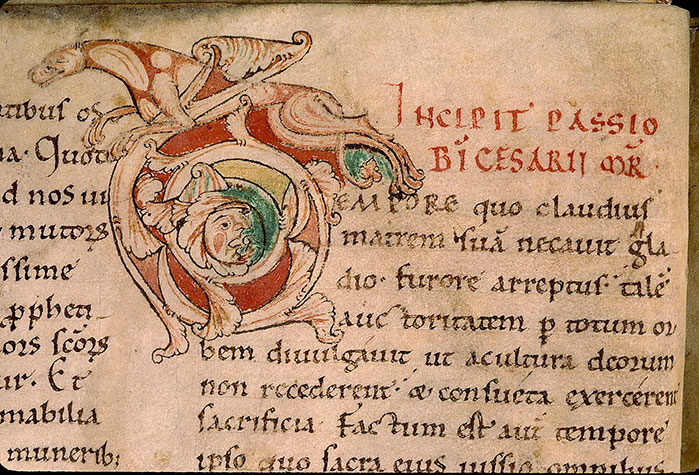 atibus os
na. Quoti
d nos ui
mutoꝝ
ssime
ꝓpheti-
oꝛs sc̄oꝝ
ur. Et
mabilia
munerib;
INCIPIT PASSIO
B̄I CESARII M̄R.
TEMPORE quo claudius
matrem suā necauit gla-
dio. furore arreptus talē
auctoritatem p̄ totum or
bem diuulgauit ut a cultura deorum
non recederent. & consueta exercerent
sacrificia. Factum est aut̄ tempore
ipso quo sacra eius iussio omnibus